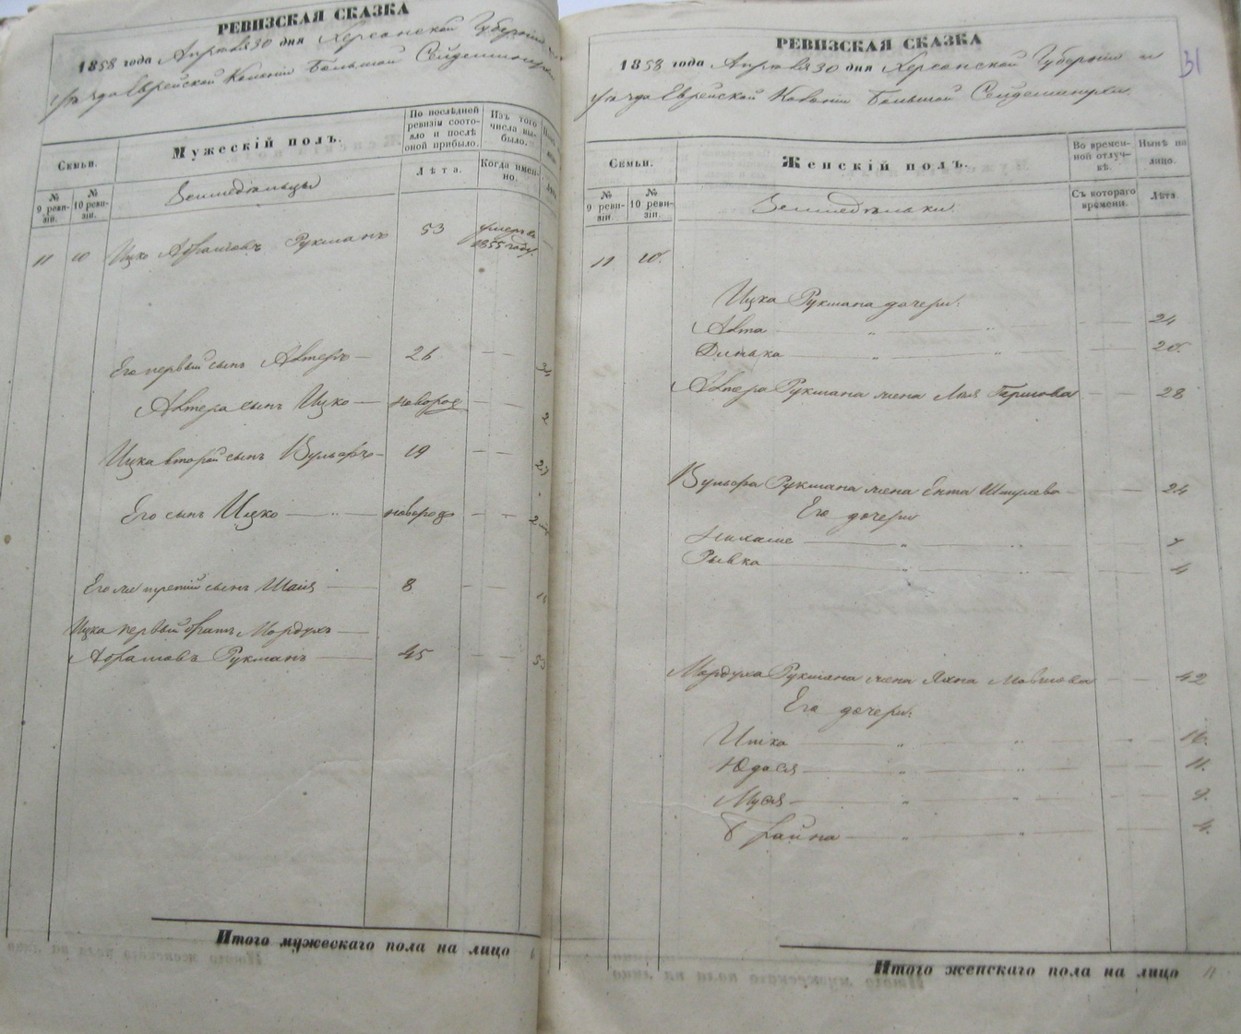 РЕВИЗСКАЯ СКАЗКА
1858 года Апреля 30 дня Херсонской Губерніи
уѣзда Еврейской Колоніи Большой Сейдеминухи
Семьи.
Мужескій полъ.
По послѣдней ревизіи состояло и послѣ оной прибыло.
Изъ того числа выбыло.
№ 9 ревизіи.
№ 10 ревизіи.
Земледѣльцы
Лѣта.
Когда именно.
11 10 Ицко Абрамовъ Рукманъ 53 умеръ въ 1855 году.
Его первый сынъ Автеръ 26
Автера сынъ Ицко новорож 2
Ицка второй сынъ 19
Его сынъ Ицко новорож 2
Его же третій сынъ Шая 8
Ицка первый братъ Мордухъ
Абрамовъ Рукманъ 45
Итого мужескаго пола на лицо
РЕВИЗСКАЯ СКАЗКА
31
1858 года Апреля 30 дня Херсонской Губерніи и
уѣзда Еврейской Колоніи Большой Сейдеминухи.
Семьи.
Женскій полъ.
Во временной отлучкѣ.
Нынѣ на лицо.
№ 9 ревизіи.
№ 10 ревизіи.
Земледѣлки.
Съ котораго времени.
Лѣта
11 10.
Ицка Рукмана дочери:
24
20.
Автера Рукмана жена Лея Гершова 28
Рукмана жена Ента Шмулева 24
Его дочери
Рывка 4
Мордуха Рукмана жена Яхна Мовшова 42
Его дочери:
Итка 16.
Юдася 11.
Муся 9.
Брайна 4.
Итого женскаго пола на лицо 11